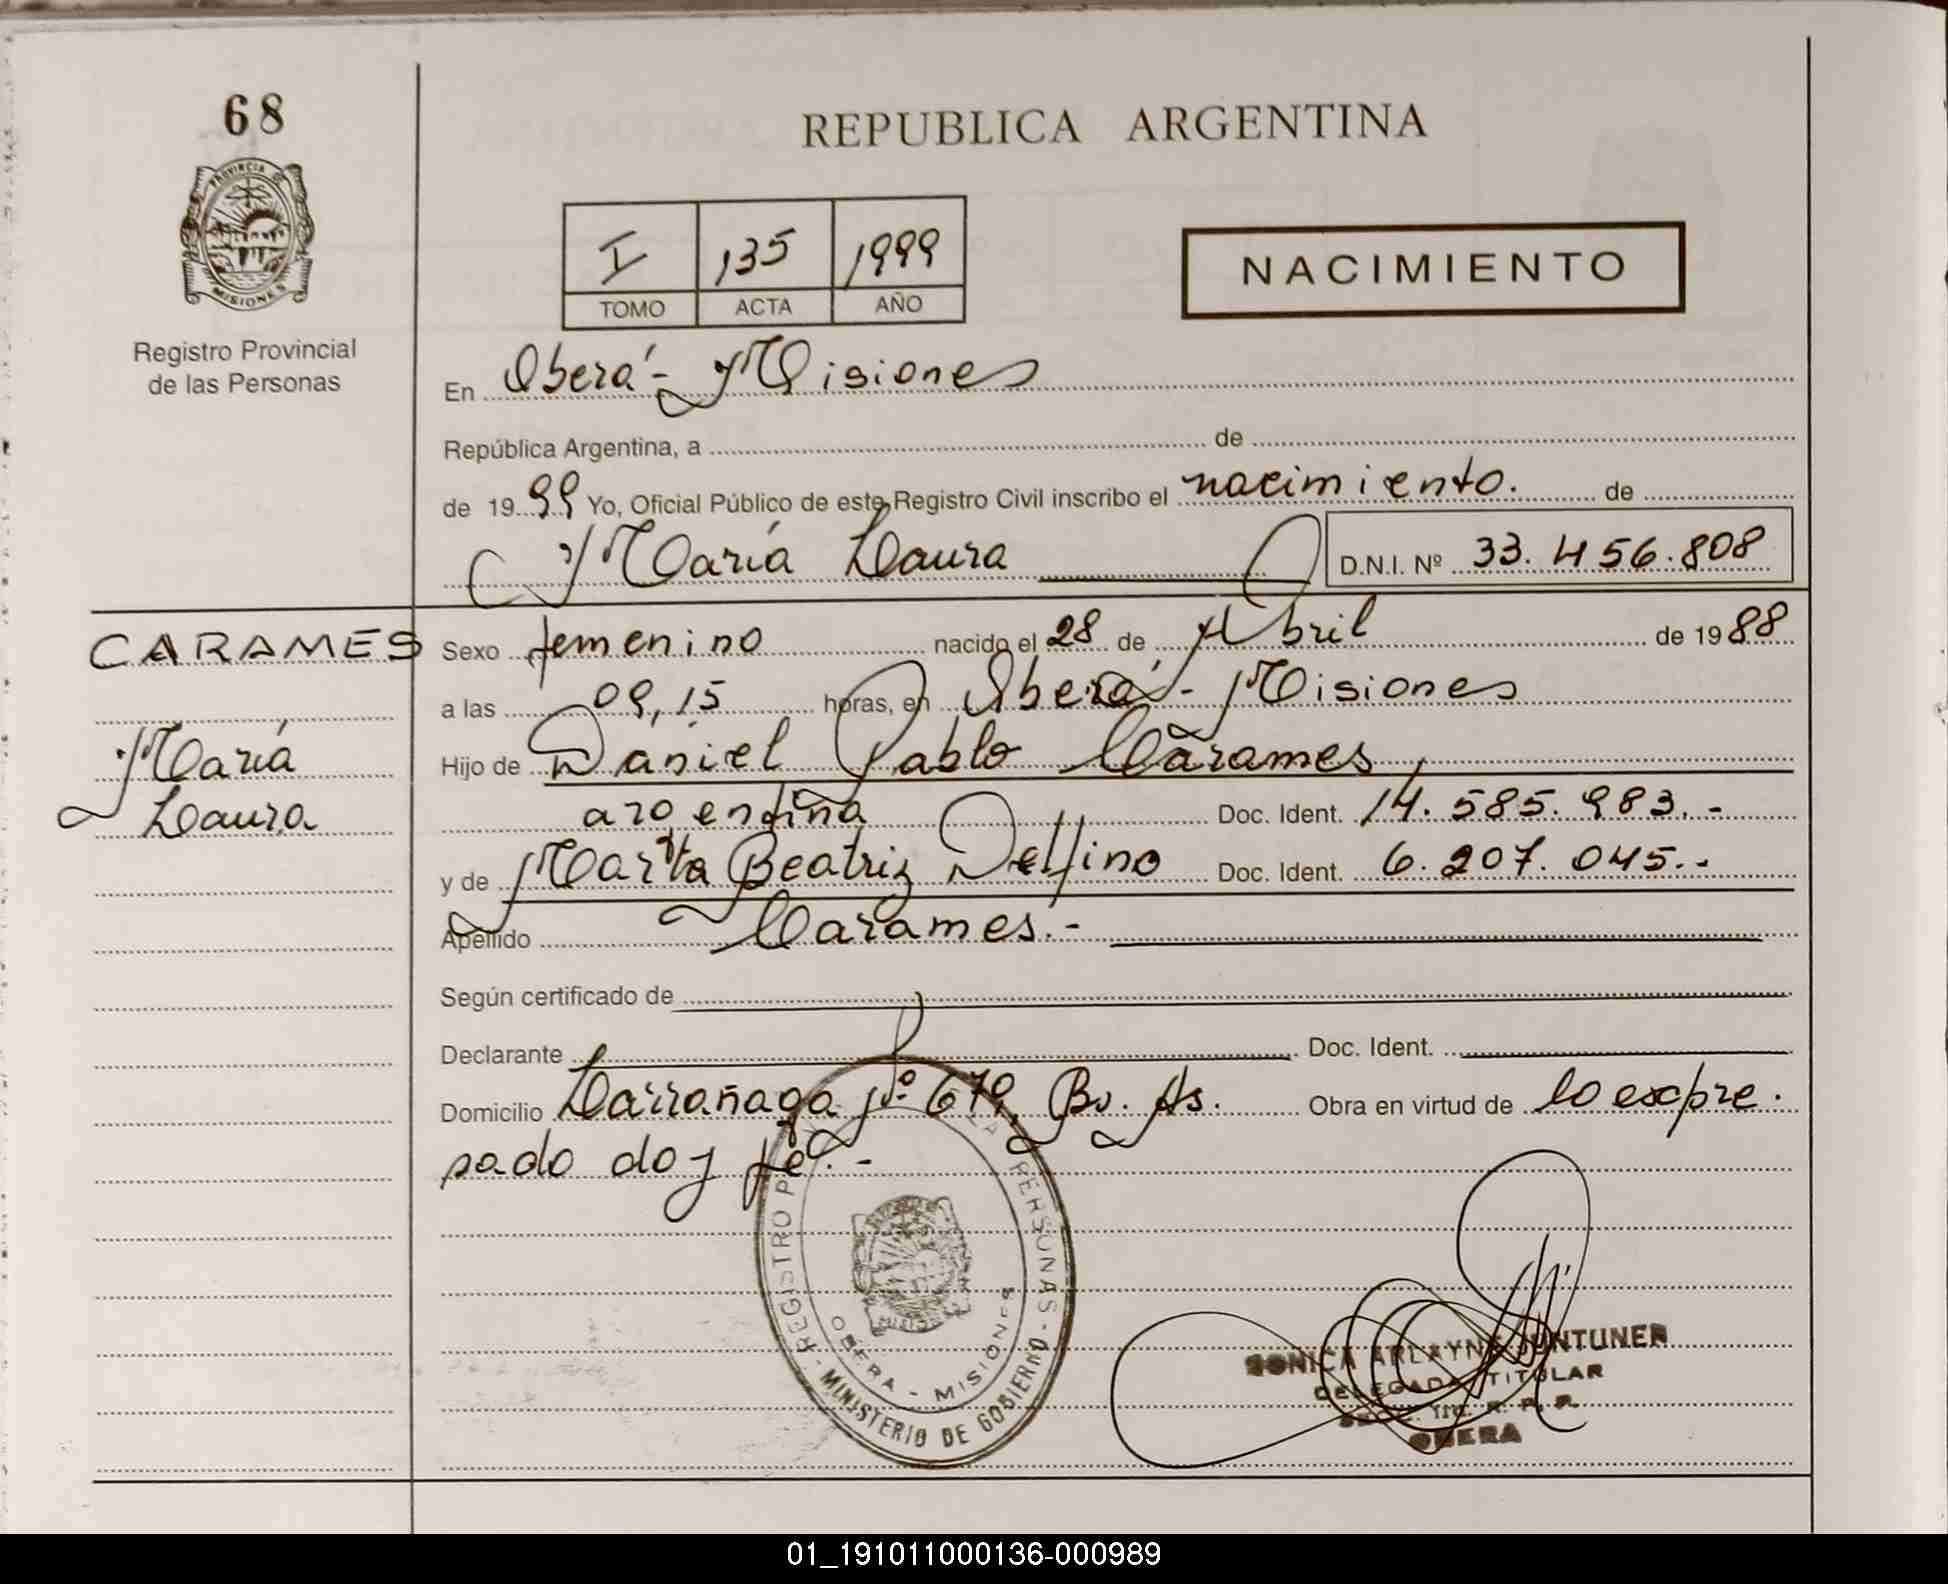 68
PROVINCIA D
MISIONES
Registro Provincial
de las Personas
REPUBLICA ARGENTINA
I 135 1999
TOMO ACTA AÑO
NACIMIENTO
En Oberá - Misiones
República Argentina, a de
de 1999 Yo, Oficial Público de este Registro Civil inscribo el nacimiento. de
María Laura D.N.I. Nº 33.456.808
CARAMES
María
Laura
Sexo femenino nacido el 28 de Abril de 1988
a las 09,15 horas, en Oberá - Misiones
Hijo de Daniel Pablo Carames,
argentina Doc. Ident. 14.585.983.-
y de Marta Beatriz Delfino Doc. Ident. 6.207.045.-
Apellido Carames.-
Según certificado de
Declarante Doc. Ident.
Domicilio Larrañaga Nº 679, Bs. As. Obra en virtud de lo expre.
sado doy fe.-
REGISTRO P PERSONAS -
MISIONES
OBERA - MISIONES
- MINISTERIO DE GOBIERNO
ARLAYNE
DELEGADA TITULAR
R. P. P.
OBERA
01_191011000136-000989